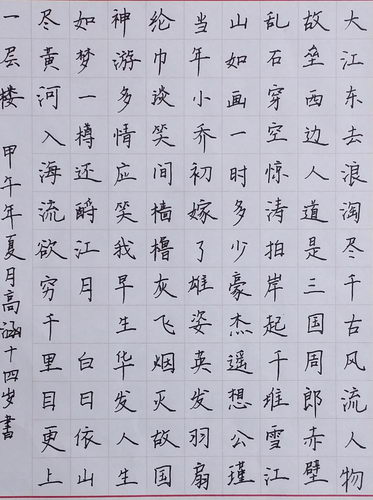 大江东去浪淘尽千古风流人物
故垒西边人道是三国周郎赤壁
乱石穿空惊涛拍岸起千堆雪江
山如画一时多少豪杰遥想公瑾
当年小乔初嫁了雄姿英发羽扇
纶巾谈笑间樯橹灰飞烟灭故国
神游多情应笑我早生华发人生
如梦一樽还酹江月 白日依山
尽黄河入海流欲穷千里目更上
一层楼 甲午年夏月高涵十四岁書